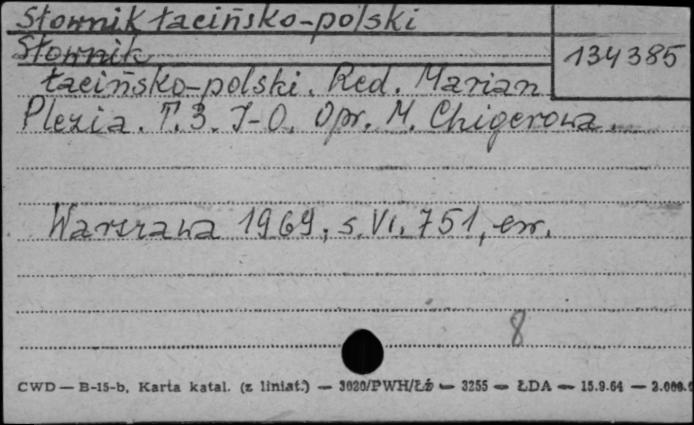 Słownik łacińsko-polski
134385
Słownik
łacińsko-polski. Red. Marian
Plezia. T. 3. I-O. Opr. M. Chigerowa.
Warszawa 1969, s. VI, 751, err.
8
CWD — B-15-b. Karta katal. (z liniat.) — 3020/PWH/Łź — 3255 — ŁDA — 15.9.64 — 2.000.0